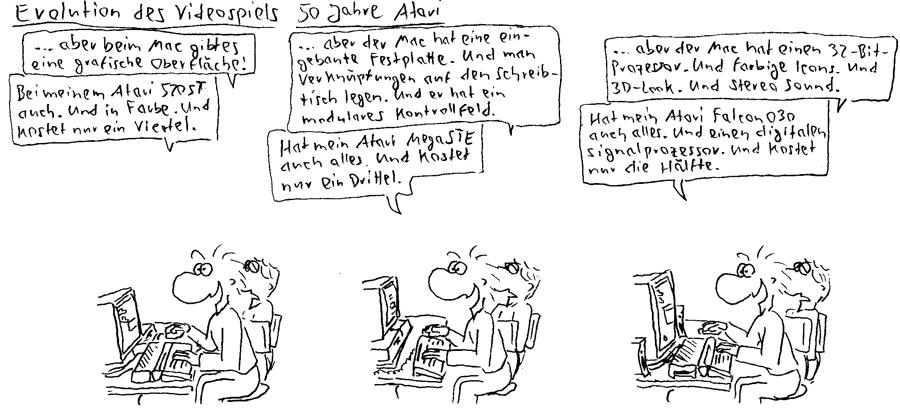 Evolution des Videospiels 50 Jahre Atari
... aber beim Mac gibtes
eine grafische Oberfläche!
Bei meinem Atari 520ST
auch. Und in Farbe. Und
kostet nur ein Viertel.
... aber der Mac hat eine ein-
gebaute Festplatte. Und man
Verknüpfungen auf den Schreib-
tisch legen. Und er hat ein
modulares Kontrollfeld.
Hat mein Atari MegaSTE
auch alles. Und kostet
nur ein Drittel.
... aber der Mac hat einen 32-Bit-
Prozessor. Und farbige Icons. Und
3D-Look. Und Stereo Sound.
Hat mein Atari Falcon030
auch alles. Und einen digitalen
signalprozessor. Und kostet
nur die Hälfte.